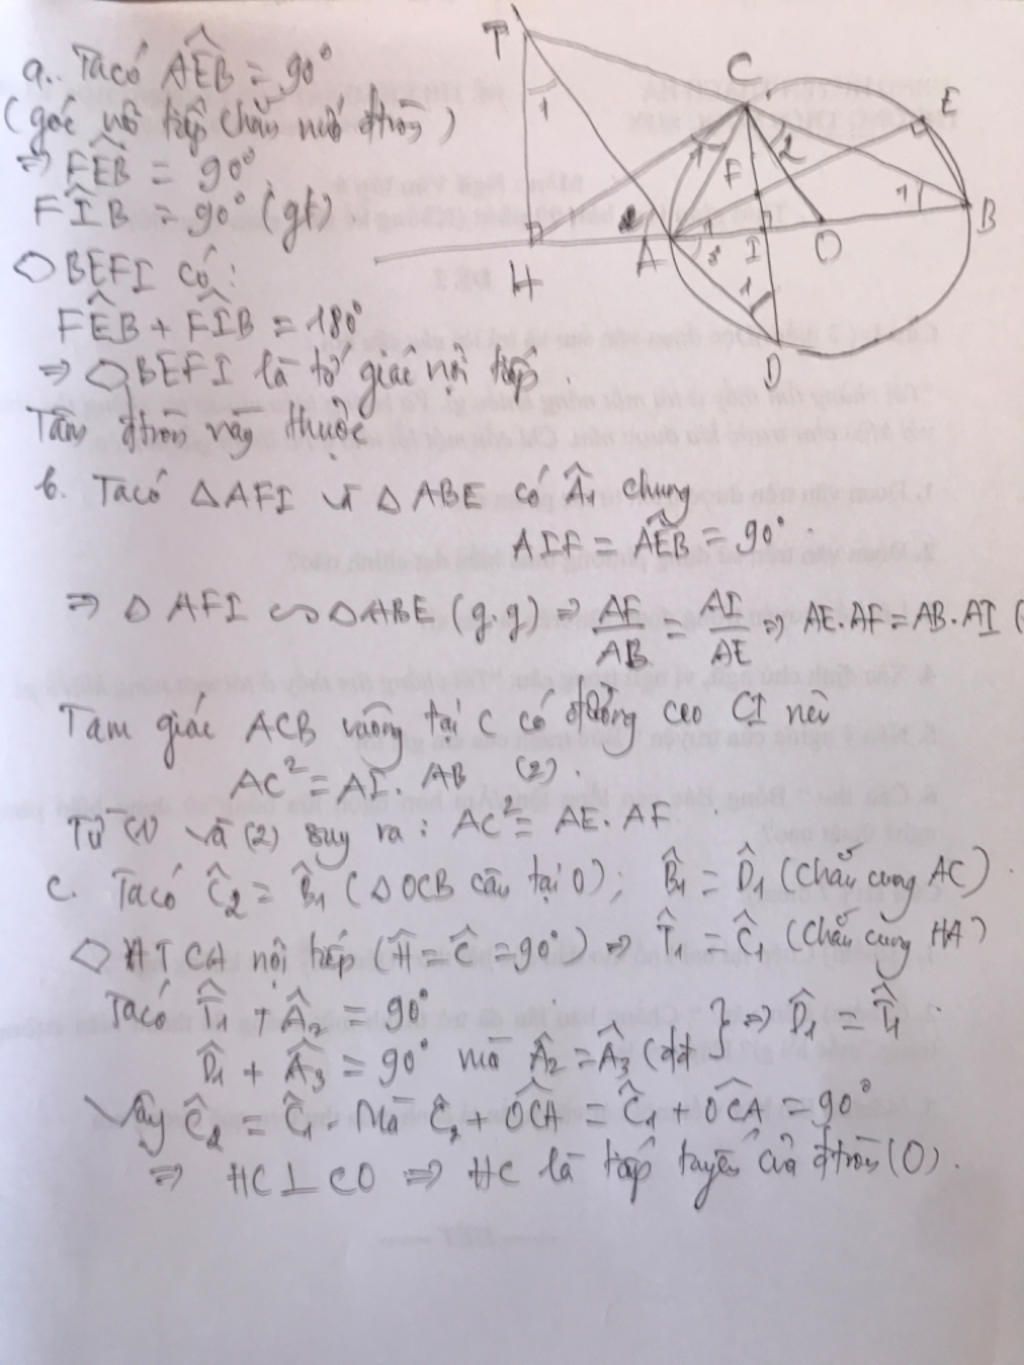 a. Ta có AÊB = 90°
(góc nội tiếp chắn nửa đtròn)
⇒ FÊB = 90°
FÎB = 90° (gt)
◇ BEFI có:
FÊB + FÎB = 180°
⇒ ◇ BEFI là tứ giác nội tiếp.
Tâm đtròn này thuộc
b. Ta có △AFI và △ABE có Â₁ chung
AIF = AÊB = 90°.
⇒ △ AFI ∽ △ABE (g.g) ⇒ AF/AB = AI/AE ⇒ AE.AF = AB.AI (
Tam giác ACB vuông tại C có đường cao CI nên
AC² = AI. AB (2).
Từ (1) và (2) suy ra: AC² = AE. AF
c. Ta có Ĉ₂ = B̂₁ (△OCB cân tại O); B̂₁ = D̂₁ (chắn cung AC)
◇ HTCA nội tiếp (Ĥ = Ĉ = 90°) ⇒ T̂₁ = Ĉ₁ (chắn cùng HA)
Ta có T̂₁ + Â₂ = 90°
D̂₁ + Â₃ = 90° mà Â₂ = Â₃ (đđ } ⇒ D̂₁ = T̂₁
Vậy Ĉ₂ = Ĉ₁. Mà Ĉ₂ + OĈA = Ĉ₁ + OĈA = 90°
⇒ HC ⊥ CO ⇒ HC là tiếp tuyến của đtròn (O).
T
C
E
1
1
F
2
1
B
2
A
1
3
I
O
H
1
D